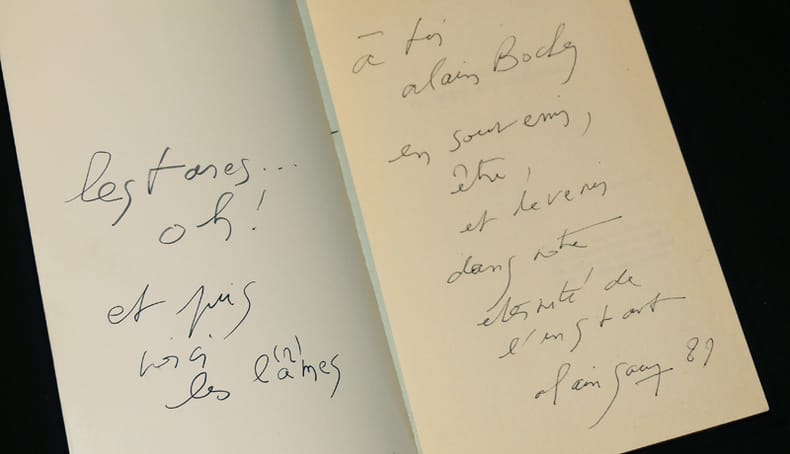 les tares...
oh!
et puis
voici
les
à toi
alain
en souvenir,
être,
et devenir
dans notre
éternité de
l'instant
alain